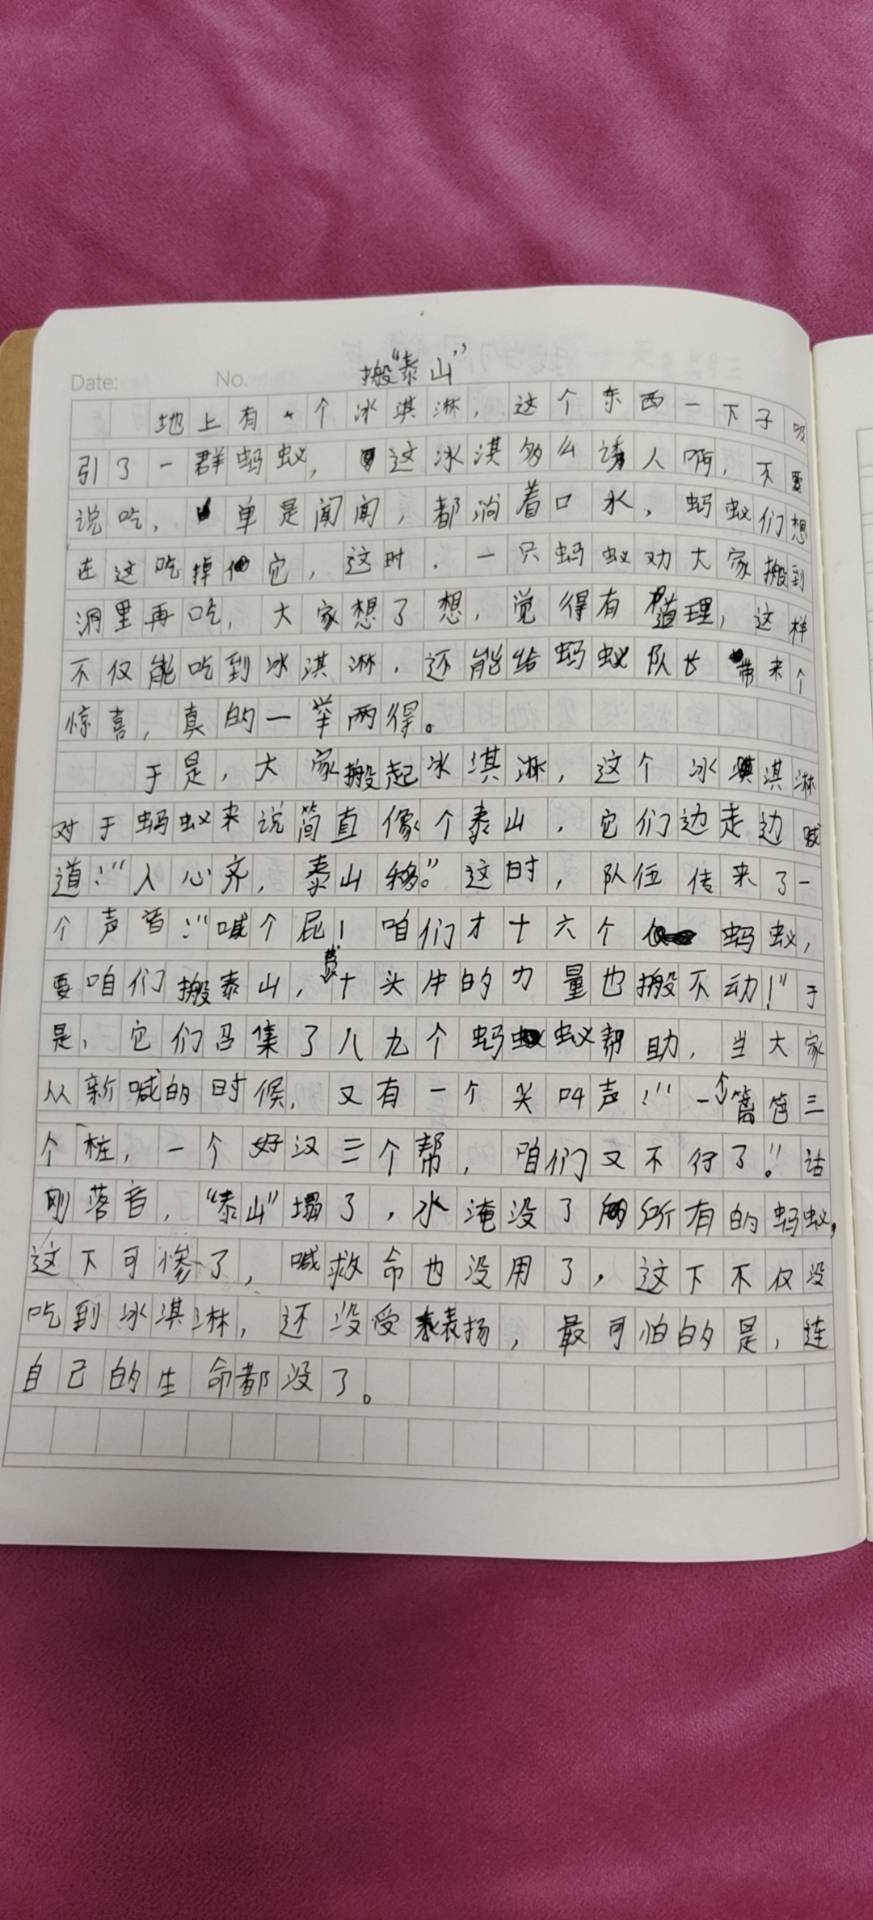 Date: No. 搬“泰山”
地上有一个冰淇淋，这个东西一下子吸
引了一群蚂蚁，这冰淇多么诱人啊，不要
说吃，单是闻闻，都淌着口水，蚂蚁们想
在这吃掉它，这时，一只蚂蚁劝大家搬到
洞里再吃，大家想了想，觉得有道理，这样
不仅能吃到冰淇淋，还能给蚂蚁队长带来个
惊喜，真的一举两得。
于是，大家搬起冰淇淋，这个冰淇淋
对于蚂蚁来说简直像个泰山，它们边走边喊
道：“人心齐，泰山移。”这时，队伍传来了一
个声音：“喊个屁！咱们才十六个蚂蚁，
要咱们搬泰山，费十头牛的力量也搬不动！”于
是，它们召集了八九个蚂蚁帮助，当大家
从新喊的时候，又有一个尖叫声：“一个篱笆三
个桩，一个好汉三个帮，咱们又不行了！”话
刚落音，“泰山”塌了，水淹没了所有的蚂蚁，
这下可惨了，喊救命也没用了，这下不仅没
吃到冰淇淋，还没受表扬，最可怕的是，连
自己的生命都没了。